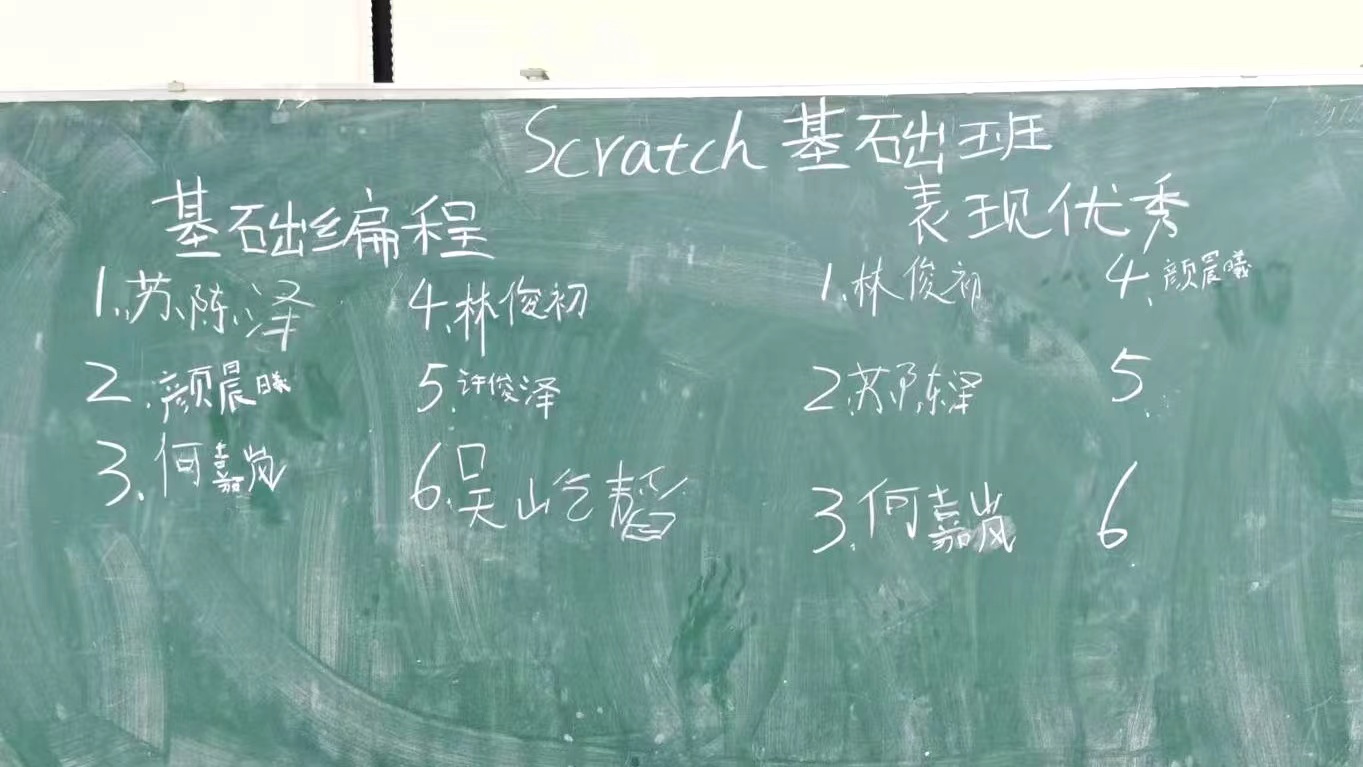 Scratch基础班
基础编程
1.苏陈泽
2.颜晨曦
3.何嘉岚
4.林俊初
5.许俊泽
6.吴屹
表现优秀
1.林俊初
2.苏陈泽
3.何嘉岚
4.颜晨曦
5.
6